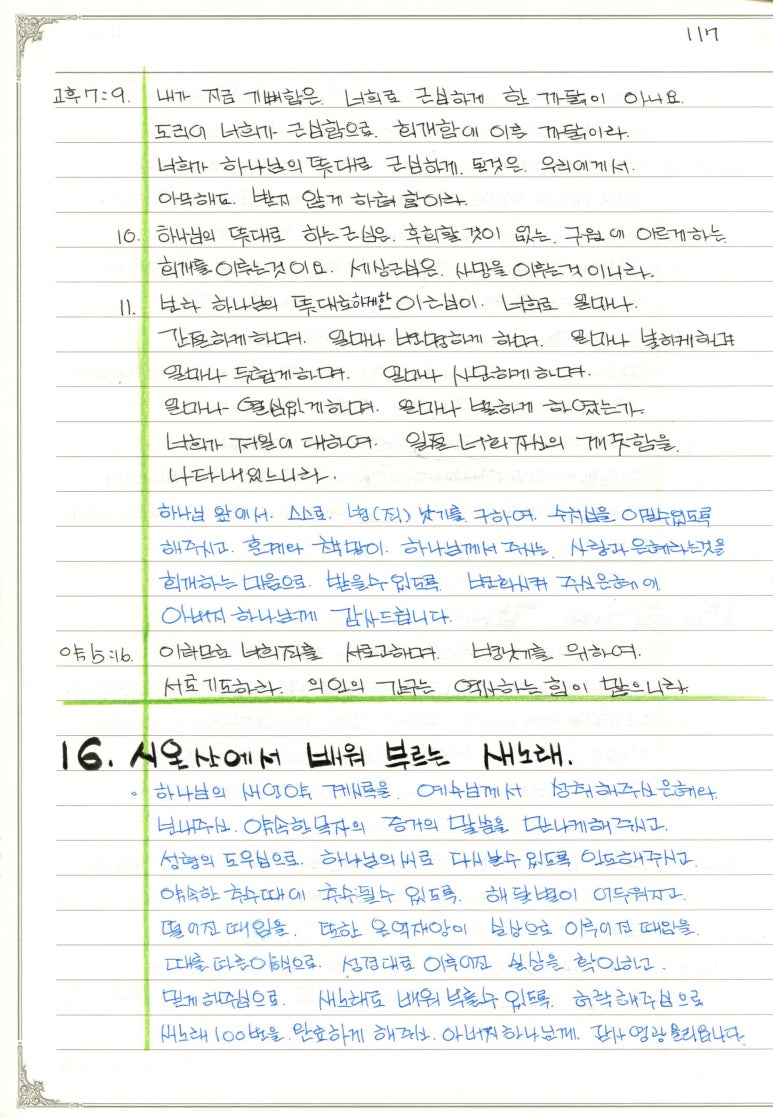 117
고후7:9. 내가 지금 기뻐함은. 너희로 근심하게 한 까닭이 아니요.
도리어 너희가 근심함으로. 회개함에 이른 까닭이라.
너희가 하나님의 뜻대로 근심하게. 된것은. 우리에게서.
아무해도. 받지 않게 하려 함이라.
10. 하나님의 뜻대로 하는근심은. 후회할 것이 없는. 구원에 이르게하는.
회개를이루는것이요. 세상근심은. 사망을이루는것이니라.
11. 보라 하나님의 뜻대로하게한 이근심이. 너희로 얼마나.
간절하게하며. 얼마나 변명하게 하며. 얼마나 분하게하며
얼마나 두렵게하며. 얼마나 사모하게하며.
얼마나 열심있게하며. 얼마나 벌하게 하였는가.
너희가 저일에 대하여. 일절 너희자신의 깨끗함을.
나타내었느니라.
하나님 앞에서. 스스로. 병(죄) 낫기를 구하여. 수치심을 이길수있도록
해주시고. 훈계와 책망이. 하나님께서 주시는. 사랑과 은혜라는것을
회개하는 마음으로. 받을수 있도록. 변화시켜 주신은혜에
아버지 하나님께 감사드립니다.
약5:16. 이러므로 너희죄를 서로고하며. 병낫기를 위하여.
서로기도하라. 의인의 간구는 역사하는 힘이 많으니라.
16. 시온산에서 배워 부르는 새노래.
하나님의 새언약 계시록을. 예수님께서 성취해주신은혜와.
보내주신. 약속한목자의 증거의 말씀을 만나게해주시고.
성령의 도우심으로. 하나님의씨로 다시날수 있도록 인도해주시고.
약속한 추수때에 추수될수 있도록. 해달별이 어두워지고.
떨어진 때임을. 또한 온역재앙이 실상으로 이루어진 때임을.
때를 따른양식으로. 성경대로 이루어진 실상을 확인하고.
믿게 해주심으로. 새노래로 배워 부를수 있도록. 허락해주심으로
새노래 100번을. 완료하게 해주신. 아버지하나님께. 감사 영광 올리옵니다.